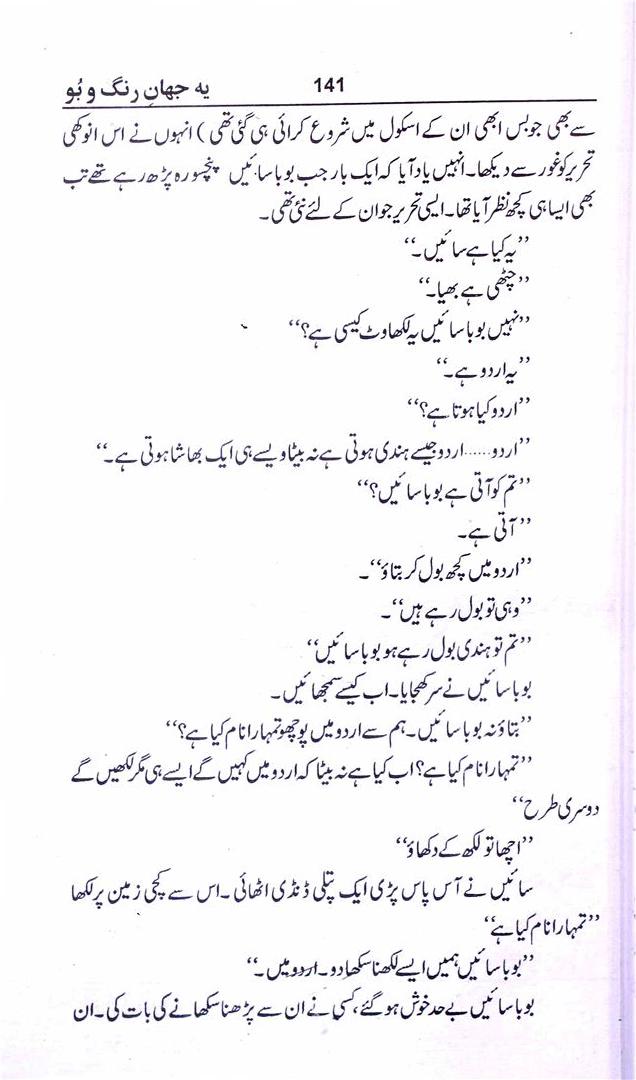 یہ جہانِ رنگ و بُو 141
سے بھی جو بس ابھی ان کے اسکول میں شروع کرائی ہی گئی تھی) انہوں نے اس انوکھی
تحریر کو غور سے دیکھا۔ انہیں یاد آیا کہ ایک بار جب بوبا سائیں پنجسورہ پڑھ رہے تھے تب
بھی ایسا ہی کچھ نظر آیا تھا۔ ایسی تحریر جو ان کے لئے نئی تھی۔
’’یہ کیا ہے سائیں۔‘‘
’’چٹھی ہے بھیا۔‘‘
’’نہیں بوبا سائیں یہ لکھاوٹ کیسی ہے؟‘‘
’’یہ اردو ہے۔‘‘
’’اردو کیا ہوتا ہے؟‘‘
’’اردو......اردو جیسے ہندی ہوتی ہے نہ بیٹا ویسے ہی ایک بھاشا ہوتی ہے۔‘‘
’’تم کو آتی ہے بوبا سائیں؟‘‘
’’آتی ہے۔
’’اردو میں کچھ بول کر بتاؤ‘‘۔
’’وہی تو بول رہے ہیں‘‘۔
’’تم تو ہندی بول رہے ہو بوبا سائیں‘‘
بوبا سائیں نے سر کھجایا۔ اب کیسے سمجھائیں۔
’’بتاؤ نہ بوبا سائیں۔ ہم سے اردو میں پوچھو تمہارا نام کیا ہے؟‘‘
’’تمہارا نام کیا ہے؟ اب کیا ہے نہ بیٹا کہ اردو میں کہیں گے ایسے ہی مگر لکھیں گے
دوسری طرح‘‘
’’اچھا تو لکھ کے دکھاؤ‘‘
سائیں نے آس پاس پڑی ایک پتلی ڈنڈی اٹھائی۔ اس سے کچی زمین پر لکھا
’’تمہارا نام کیا ہے‘‘
’’بوبا سائیں ہمیں ایسے لکھنا سکھا دو۔ اردو میں۔‘‘
بوبا سائیں بے حد خوش ہو گئے، کسی نے ان سے پڑھنا سکھانے کی بات کی۔ ان